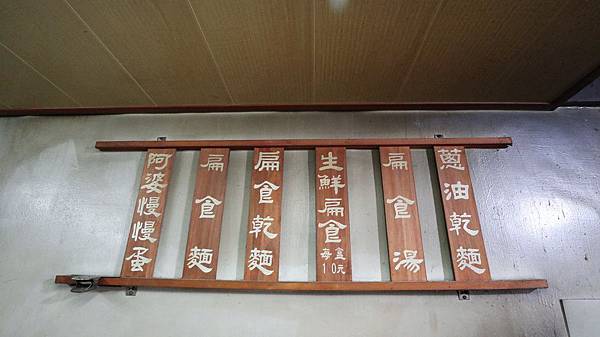 蔥油乾麵
扁食湯
生鮮扁食
每盒
10元
扁食乾麵
扁食麵
阿婆慢慢蛋